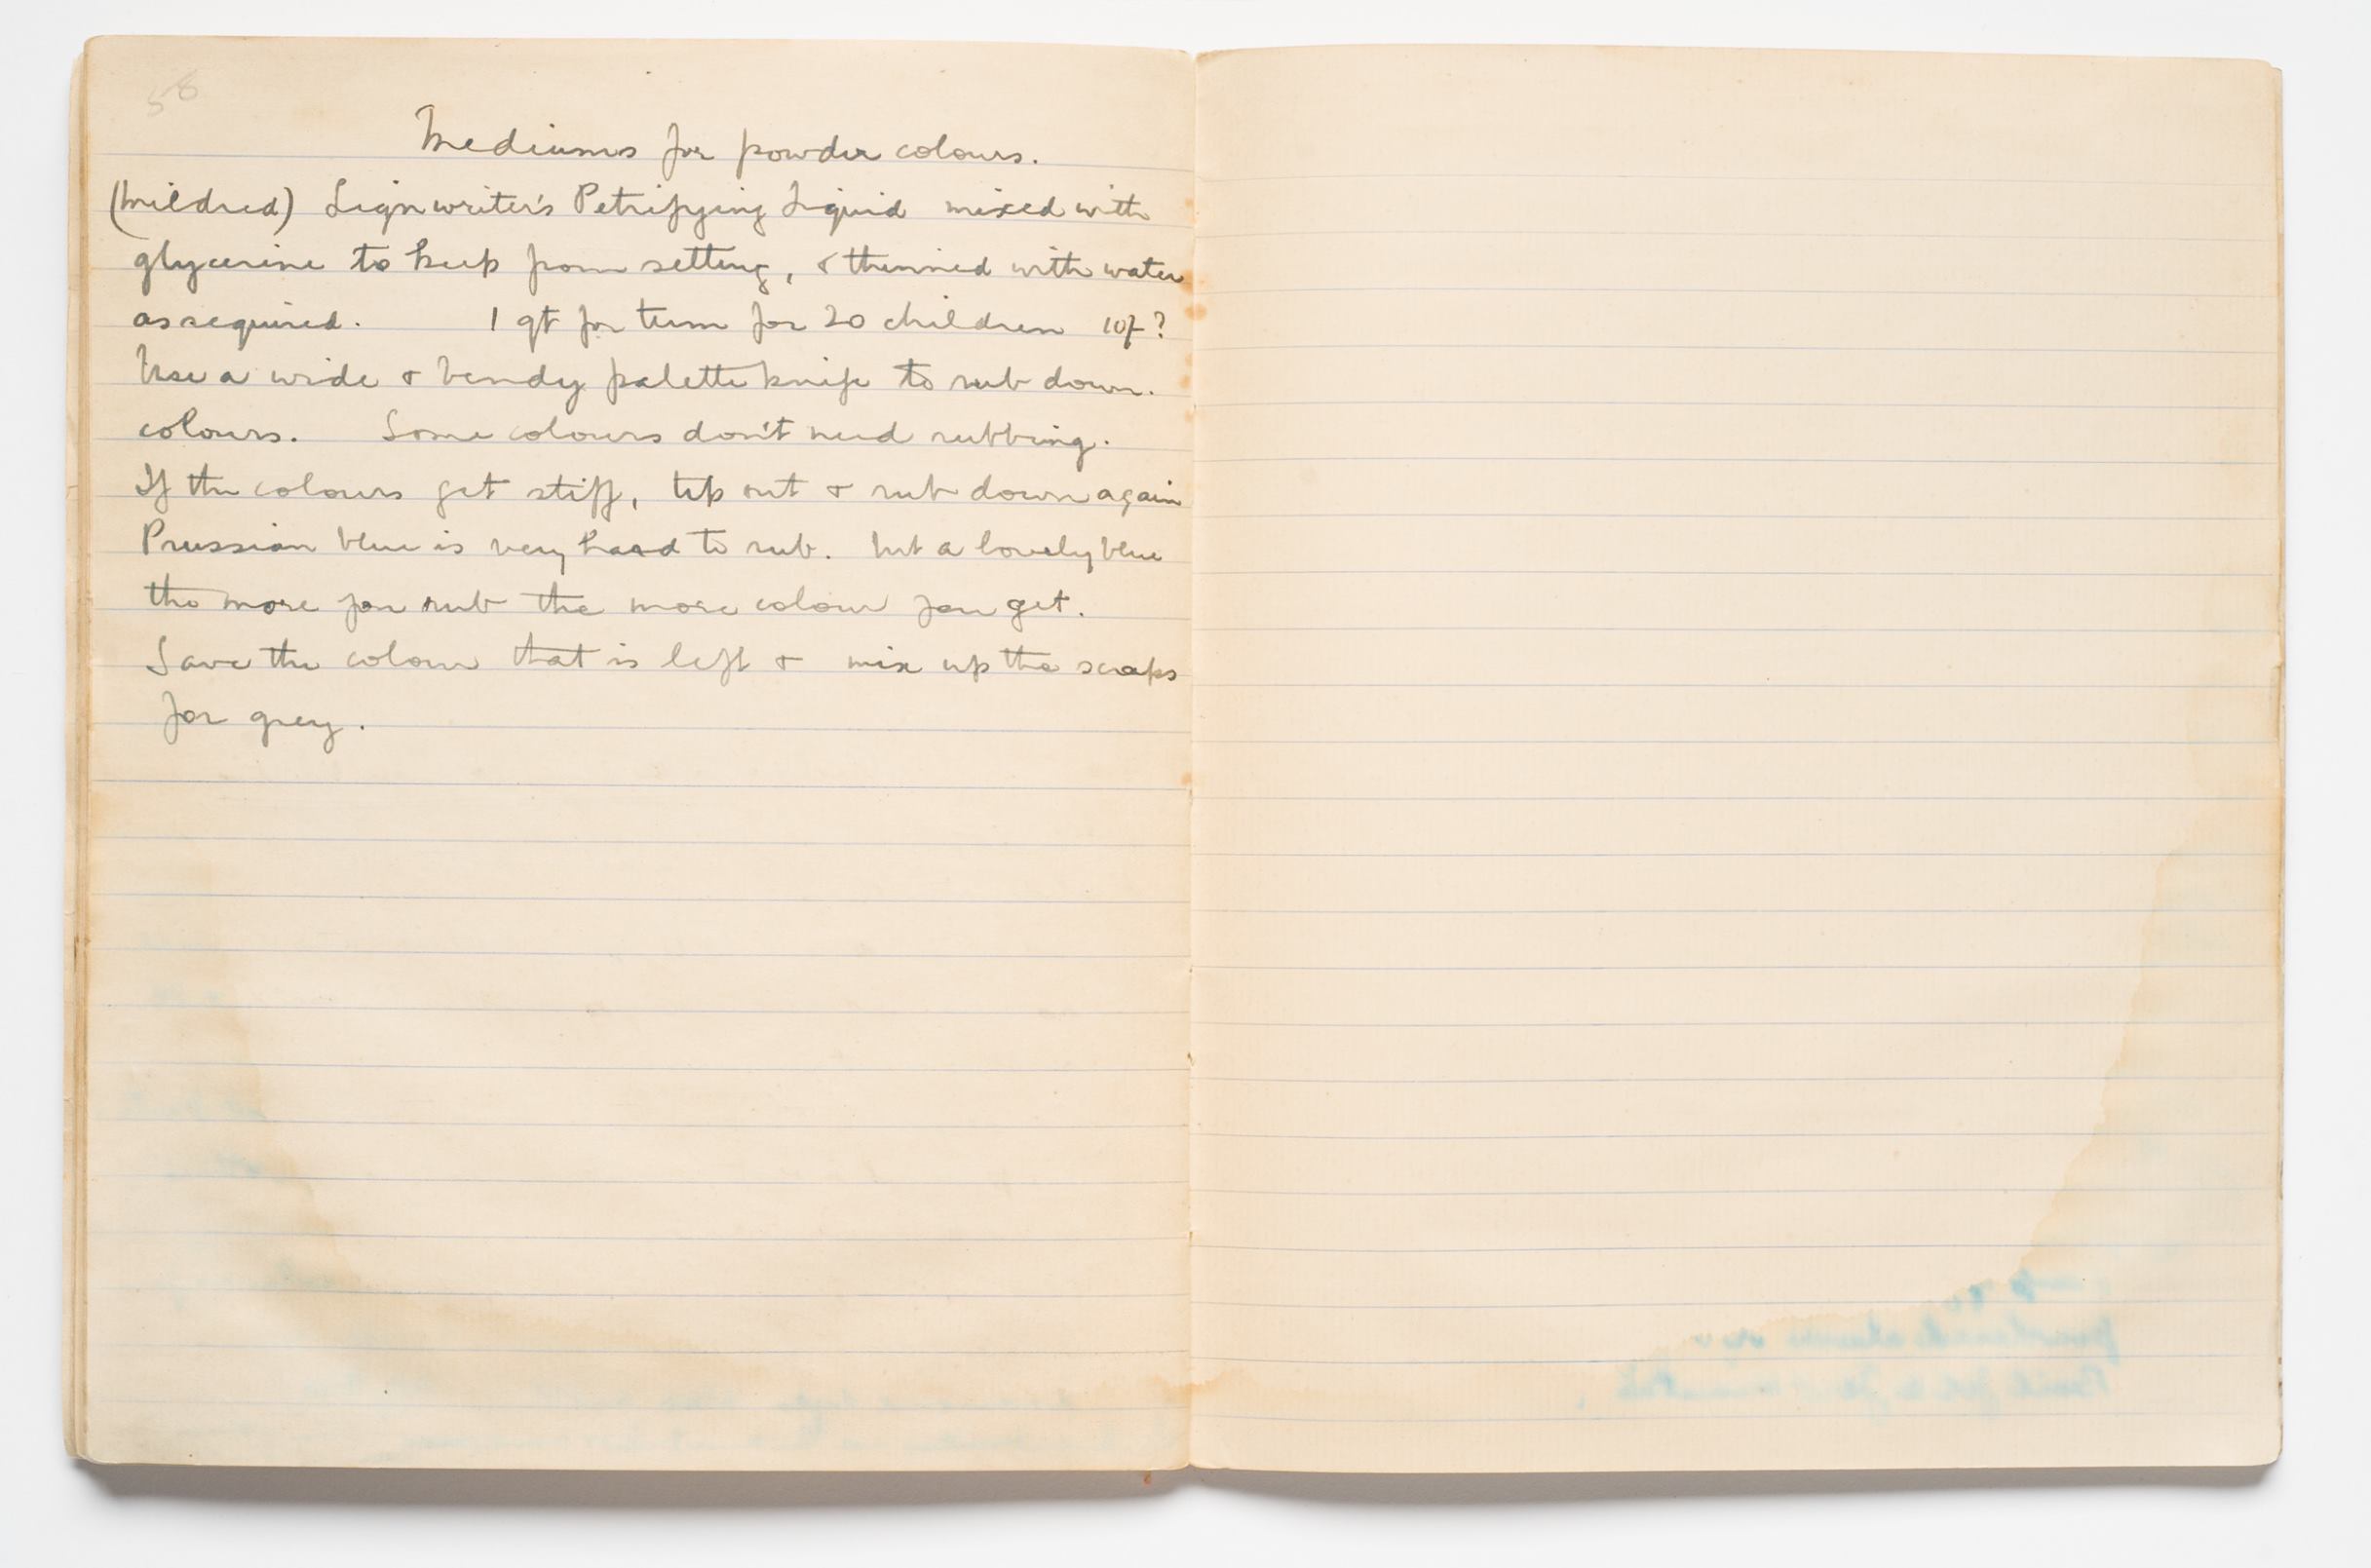 58
Mediums for powder colours.
(Mildred) Signwriter's Petrifying Liquid mixed with
glycerine to keep from setting, & thinned with water
as required. 1 qt for term for 20 children 10/- ?
Use a wide & bendy palette knife to rub down.
colours. Some colours don't need rubbing.
If the colours get stiff, tip out & rub down again
Prussian blue is very hard to rub. but a lovely blue
the more you rub the more colour you get.
Save the colour that is left & mix up the scraps
for grey.